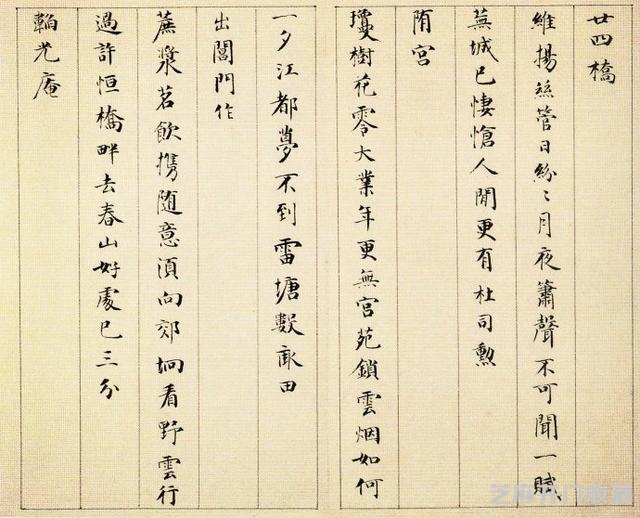 廿四橋
維揚絲管日紛〻月夜簫聲不可聞一賦
蕪城已悽愴人間更有杜司勳
隋宮
瓊樹花零大業年更無宮苑鎖雲烟如何
一夕江都夢不到雷塘數畝田
出閶門作
蔗漿茗飲攜隨意須向郊坰看野雲行
過許恒橋畔去春山好處已三分
韜光庵